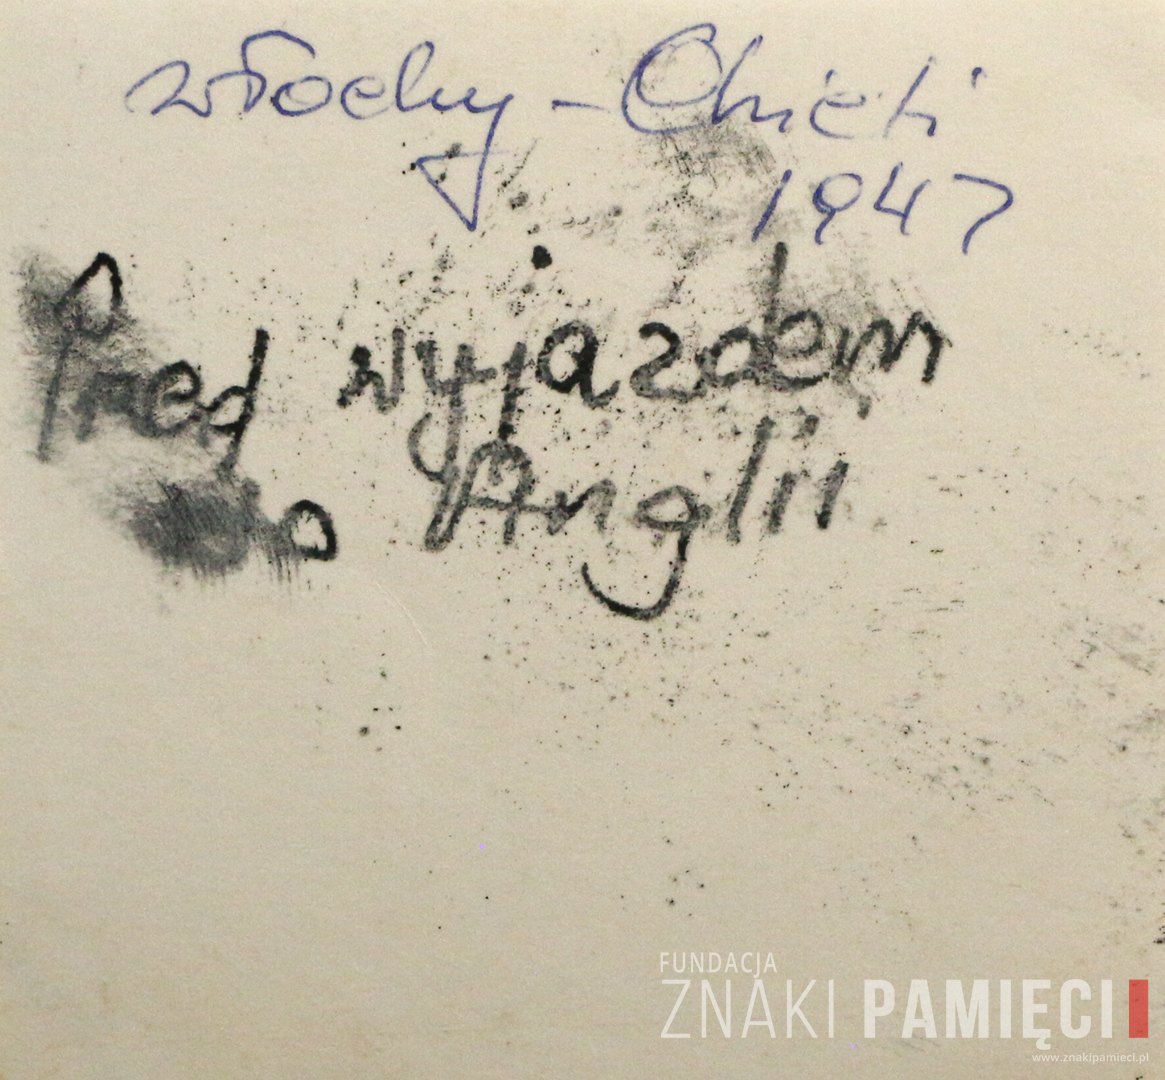 włochy - Chieti
1947
Przed wyjazdem
do Anglii
FUNDACJA
ZNAKI PAMIĘCI
www.znakipamieci.pl